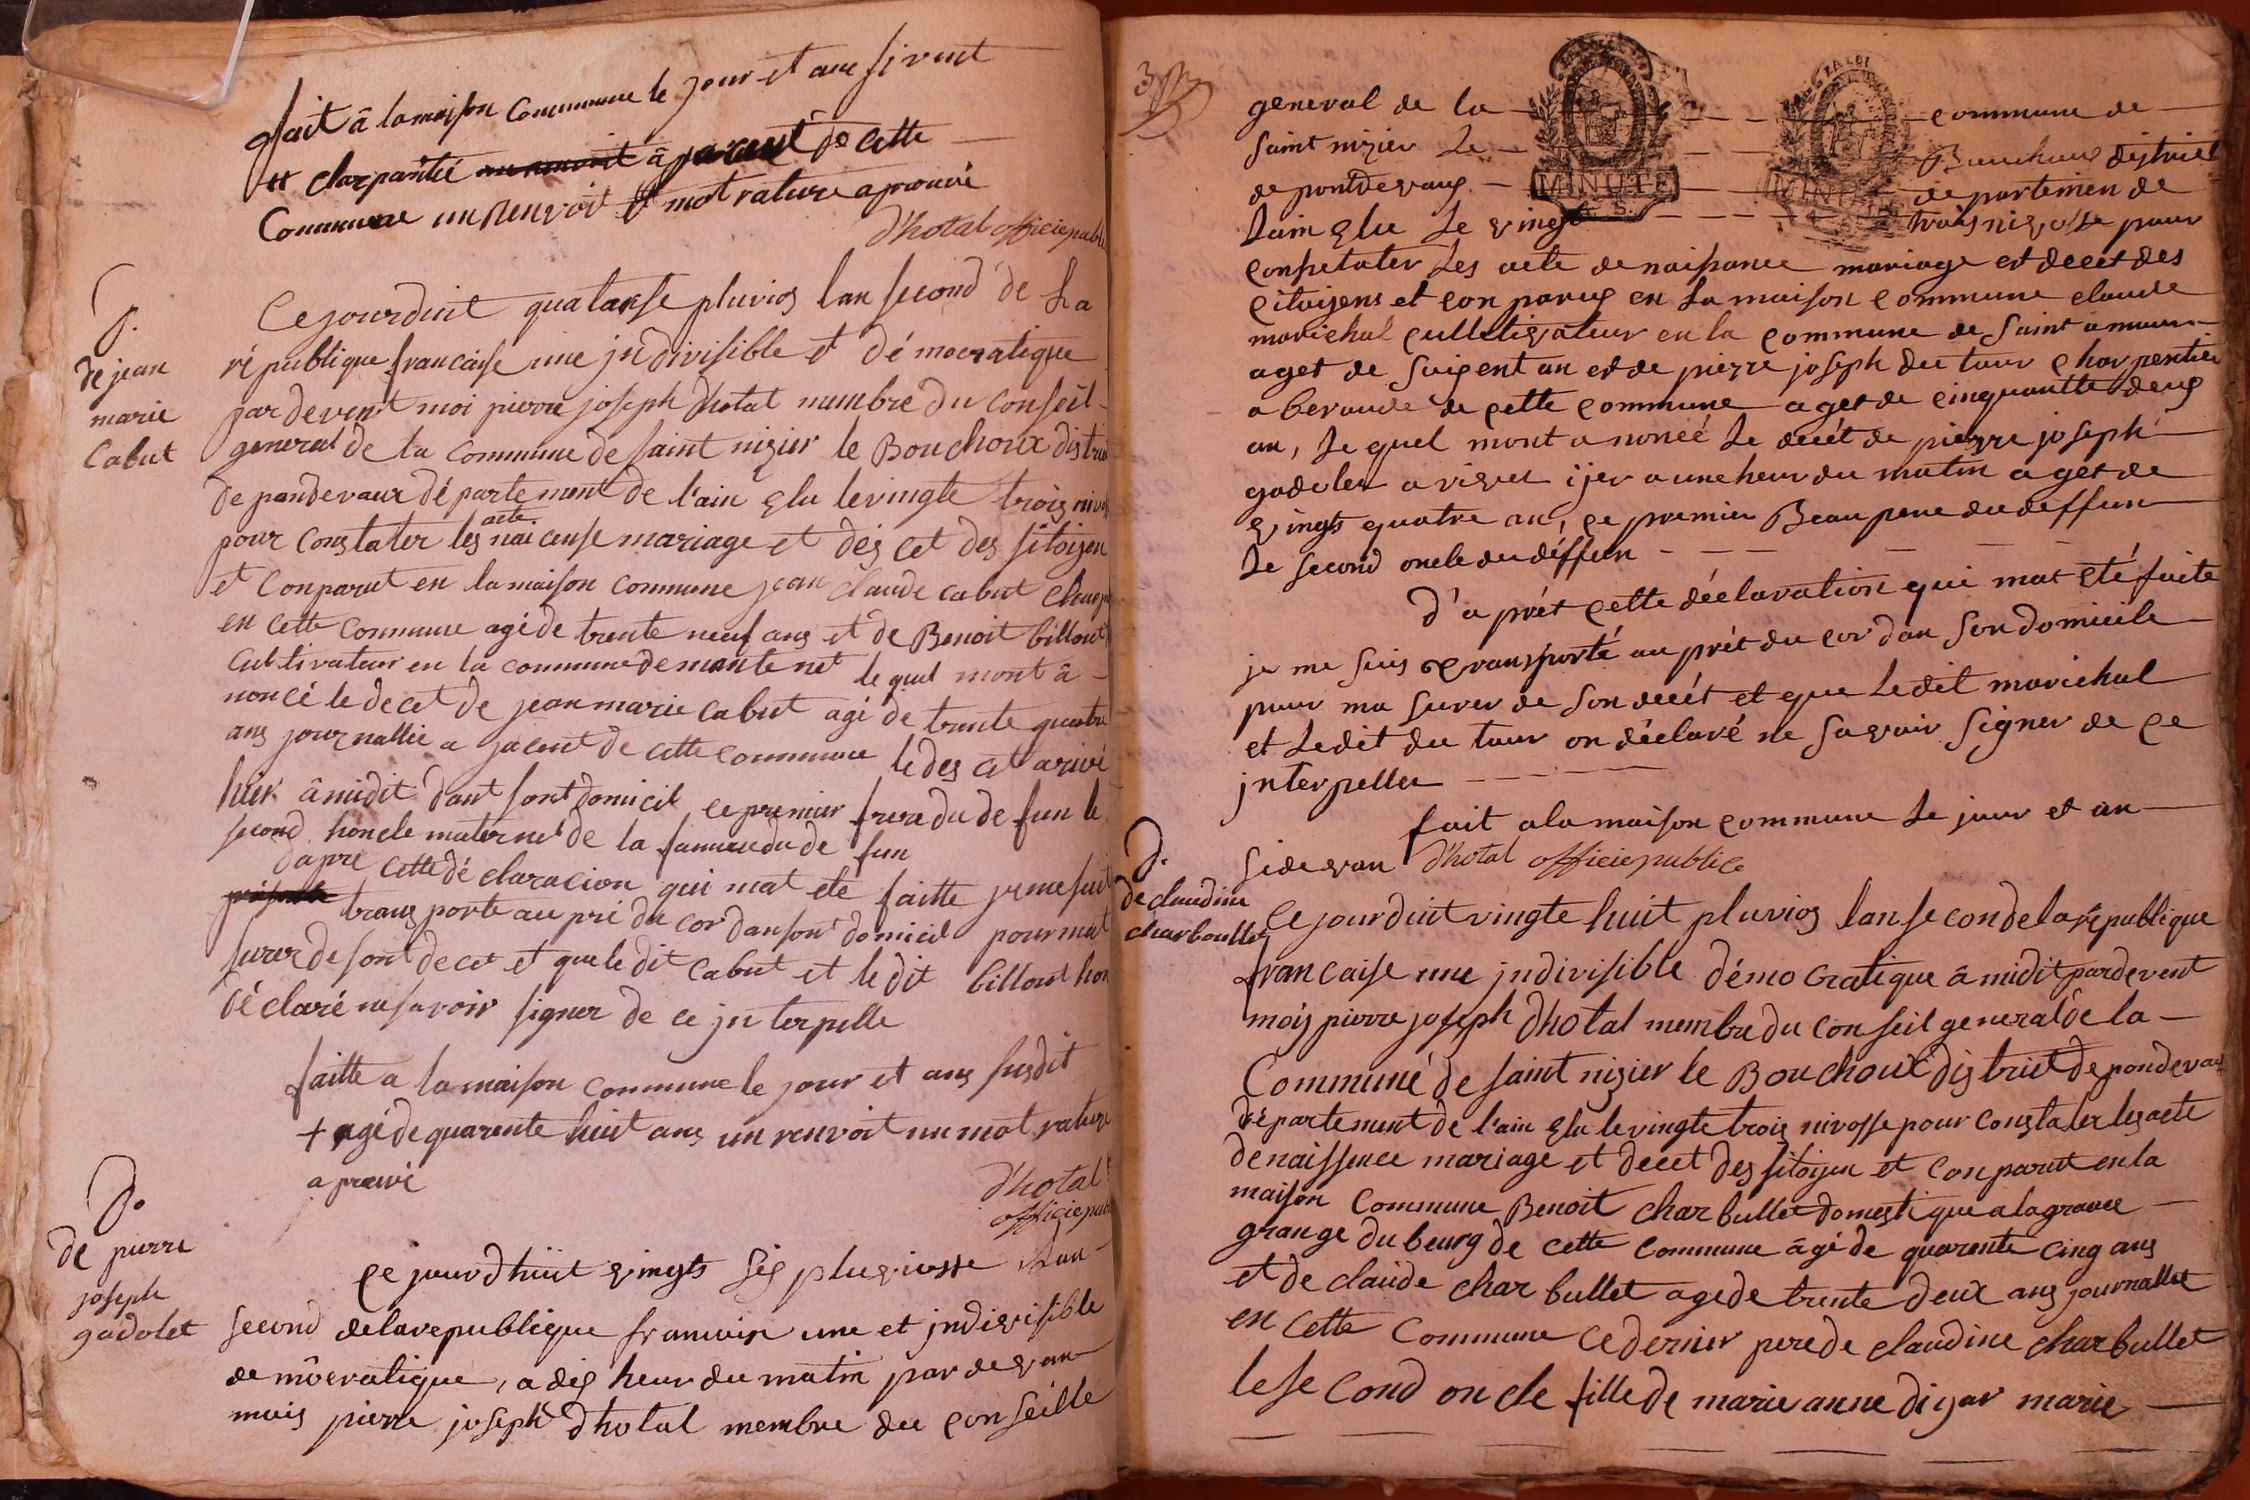 fait â la maison Commune le jour et ans si vent
+ charpantié a jacent de cette
Commune un renvoit mot rature aprouvé
Dhotal officie public
D.
de jean
marie
Cabut
Ce jourduit quatorse pluvios lan second de La
république francaise une jndivisible et démocratique
par devent moi pierre joseph Dhotal mambre du Conseil
general de la Commune de saint nizier le Bouchoux distri
de pondevaux département de l'ain Elu le vingte trois nivo
acte
pour Constater les naicense mariage et des cet des sitoijen
et Conparut en la maison Commune jean Claude Cabut Charp
en cette Commune agé de trente neuf ans et de Benoit billout
Cultivateur en la Commune de mantenet le quel mont â
noncé le decet de jean marie Cabut agé de trente quatre
ans journallié a jacent de cette Commune le des cet arivé
hier â midit dant sont domicil le premier frere du defun le
second honcle maternel de la famme du de fun
dapré Cette dé claracion qui mat ete faitte je me suit
trans porte au pré du cor danson domicil pour mat
surer de sont decet et que le dit Cabut et le dit billout hon
déclaré ne savoir signer de ce jnterpelle
faitte a la maison Commune le jour et ans susdit
+ agé de quarente huit ans un renvoit un mot rature
aprouvé
Dhotal
officie public
D.
de pierre
joseph
gadolet
Ce jourdhuit vingts six pluviosse Lan
second de la republique francaise une et jndivisible
de môcratique, a dix heur du matin par devan
mois pierre joseph Dhotal membre du Conseille
3
general de la commune de
saint nizier Le Bouchoux district
de pont de vaux departemen de
MINUTE
MINUTE
Lain Elu Le vingt trois nivosse pour
constater Les acte de naissance mariage et decet des
citoijens et conparus en La maison commune claude
marichal culletivateur en la commune de saint amour
aget de suisent an et de pierre joseph du tour charpentier
a beraude de cette commune aget de cinquantte deux
an, Le quel mont anoncé Le decét de pierre joseph
gadolet arivet ijer a une heur du matin aget de
vingts quatre an, ce premier Beau pere du deffun
Le second oncle du déffun
D'a prét cette déclaration qui mat été faite
je me suis transporté au prét du cor dan son domicile
pour ma surer de son decét et que Ledit marichal
et Ledit du tour on déclaré ne savoir signer de ce
jnterpeller
fait a la maison commune Le jour et an
sidevan Dhotal officie publice
D.
de claudine
charboullet
Ce jourduit vingte huit pluvios lan second de la république
francaise une jndivisible démo Cratique â midit pardevent
mois pierre joseph Dhotal membre du Conseil general de la
Communé de saint nizier le Bouchoux district de pondevaux
département de l'ain Elu le vingte trois nivosse pour Constater les acte
de naissence mariage et decet des sitoijen et Conparut en la
maison Commune Benoit charbullet domestique a la grance
grange du beurg de cette Commune âgé de quarente Cinq ans
et de claude charbullet age de trente deux ans journallié
en Cette Commune Ce dernier pere de claudine charbullet
le se Cond on cle fille de marie anne dijar marie